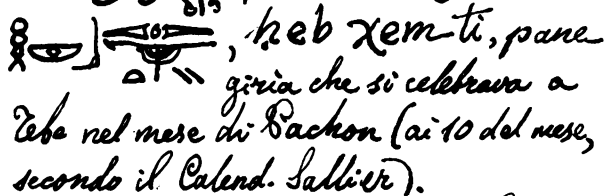 , ḥeb χem-ti, pane
giria che si celebrava a
Tebe nel mese di Pachon (ai 10 del mese,
secondo il Calend. Sallier).